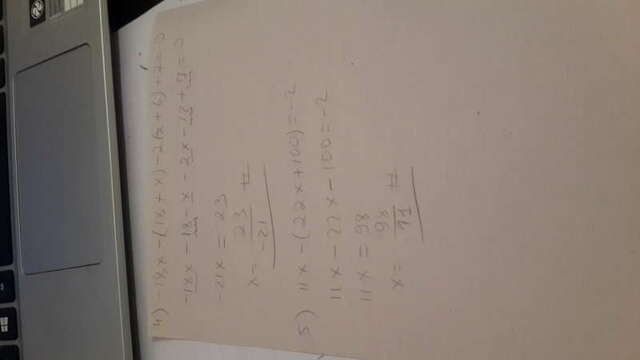 4) -18x-(18+x)-2(x+6)+7=0
-18x-18-x-2x-12+7=0
-21x = 23
x= 23/-21 #
5) 11x-(22x+100)=-2
11x-22x-100=-2
11x = 98
x= 98/11 #